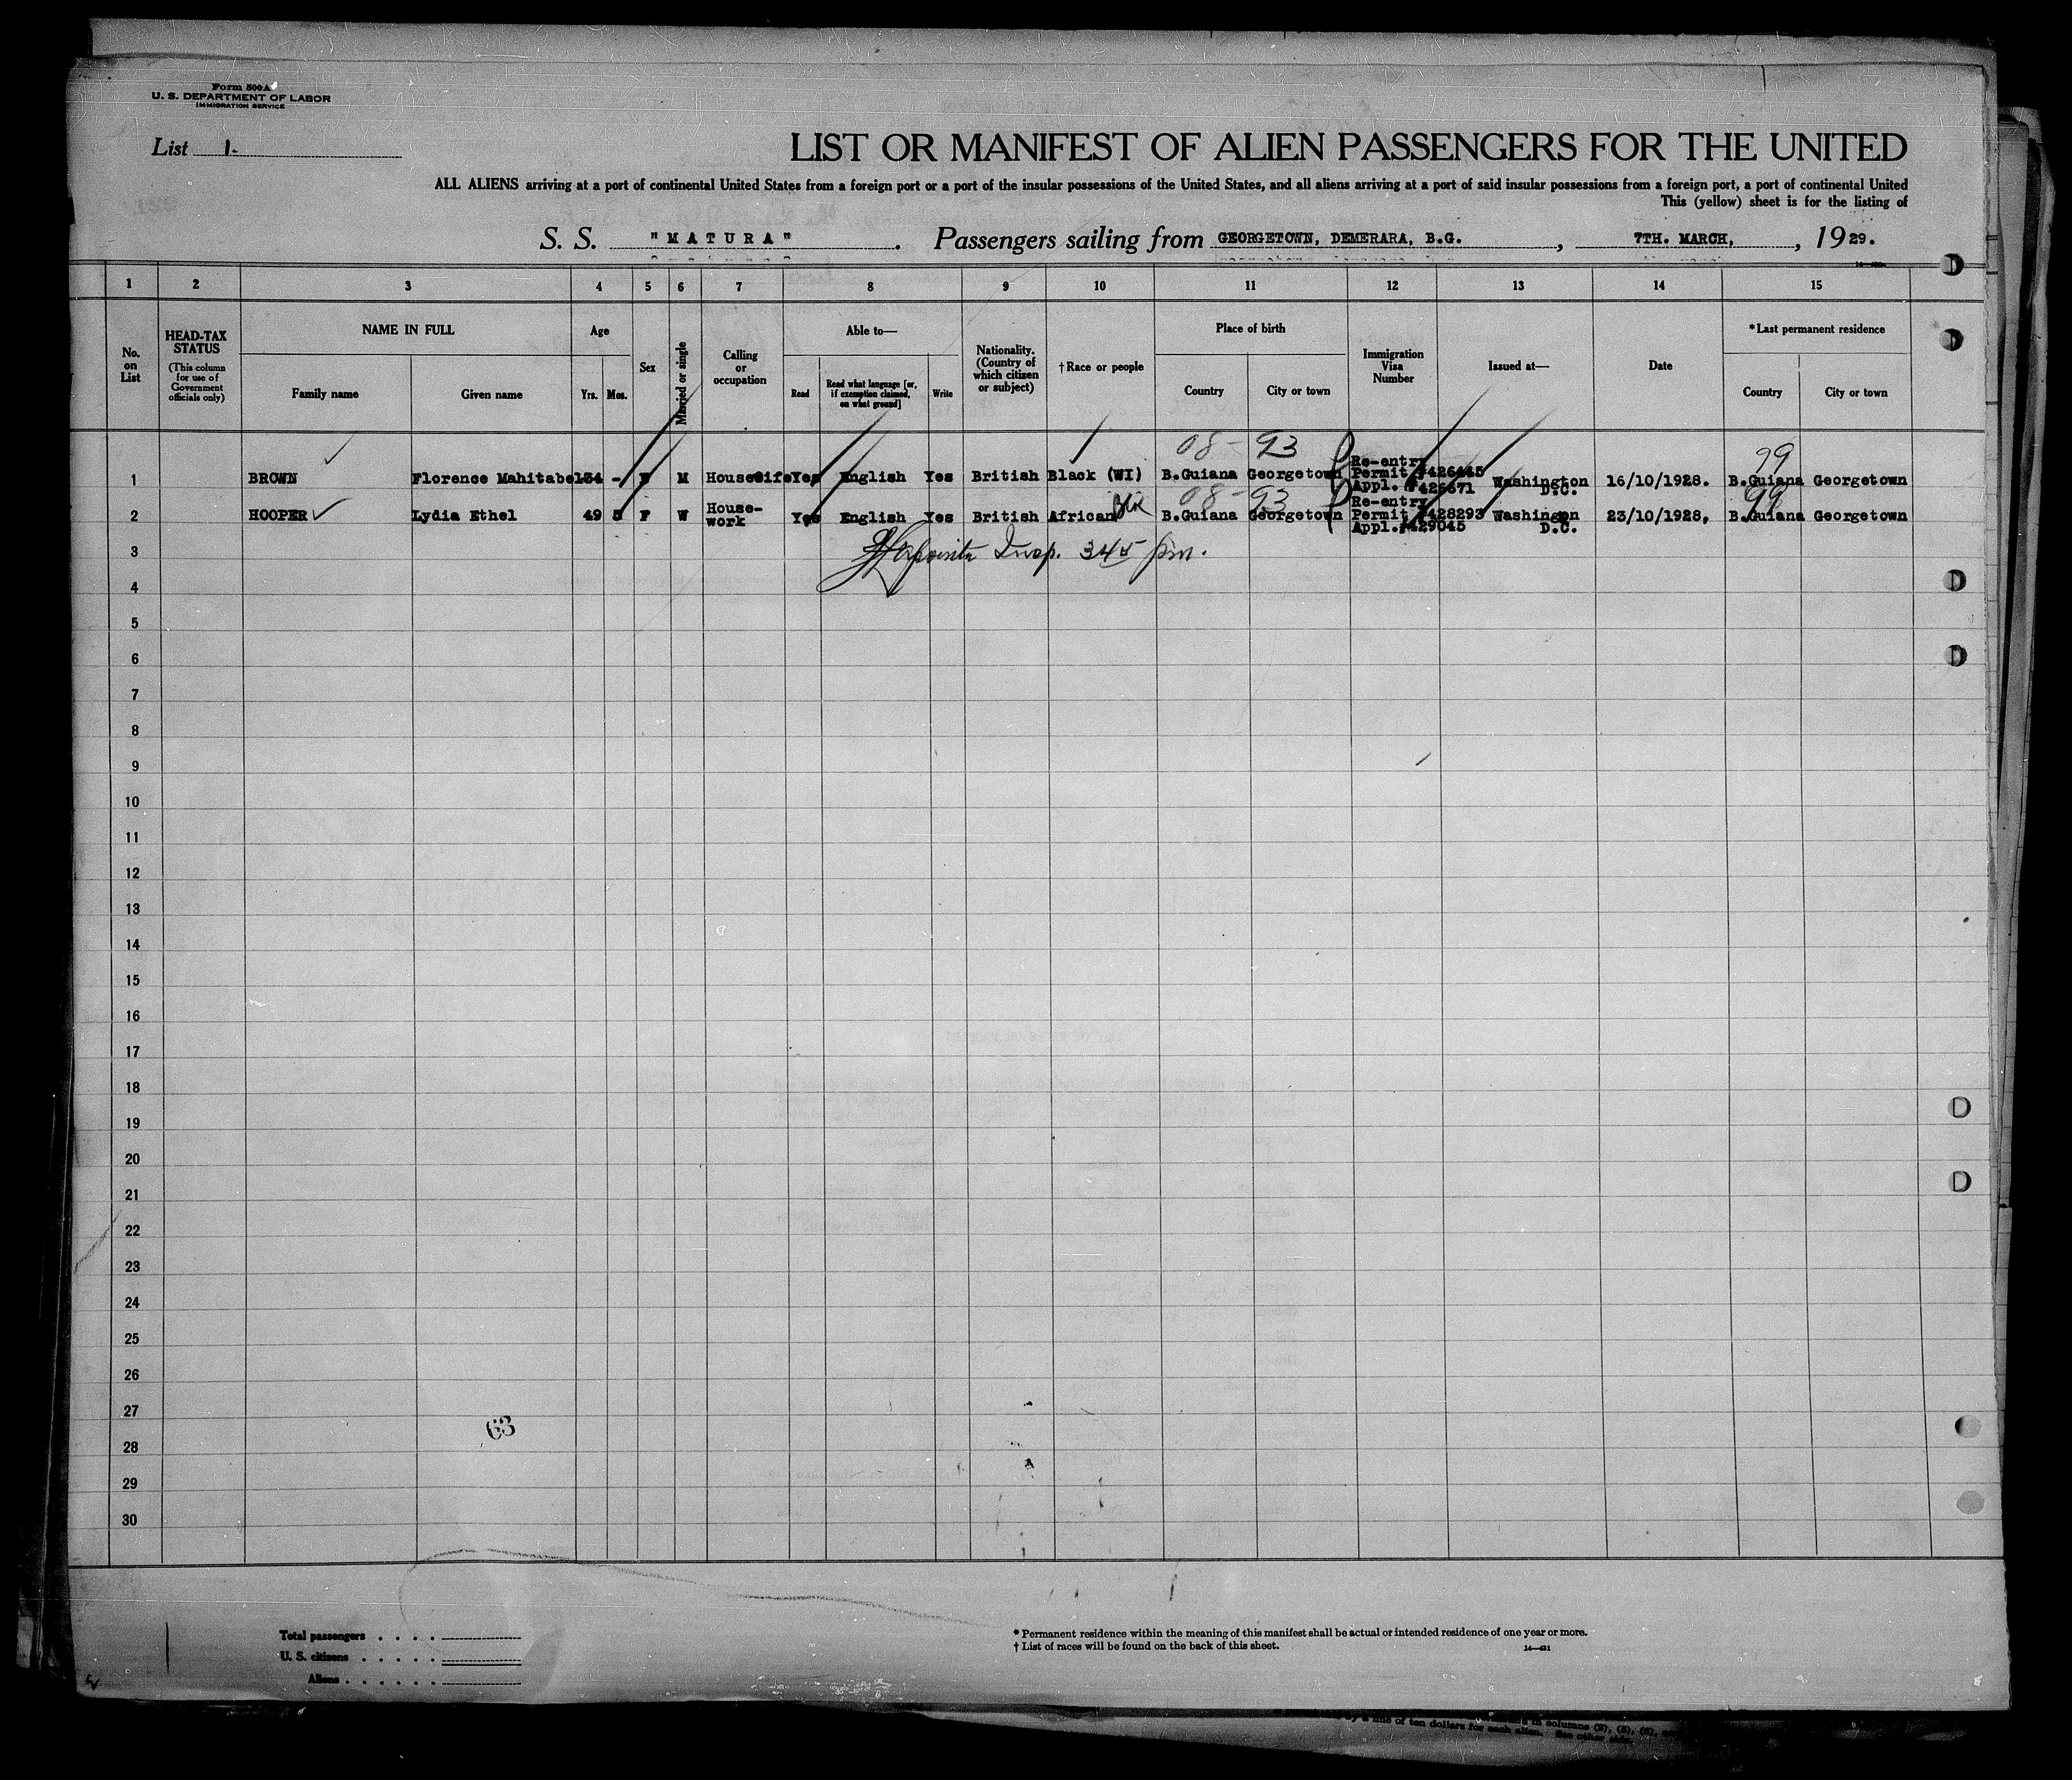 Form 500A
U. S. DEPARTMENT OF LABOR
IMMIGRATION SERVICE
List 1-
LIST OR MANIFEST OF ALIEN PASSENGERS FOR THE UNITED
ALL ALIENS arriving at a port of continental United States from a foreign port or a port of the insular possessions of the United States, and all aliens arriving at a port of said insular possessions from a foreign port, a port of continental United
This (yellow) sheet is for the listing of
S. S. "MATURA". Passengers sailing from GEORGETOWN, DEMERARA, B.G., 7TH. MARCH, , 1929.
1 2 3 4 5 6 7 8 9 10 11 12 13 14 15
No. on List
HEAD-TAX STATUS
(This column for use of Government officials only)
NAME IN FULL
Family name Given name
Age
Yrs. Mos.
Sex
Married or single
Calling or occupation
Able to—
Read Read what language [or, if exemption claimed, on what ground] Write
Nationality. (Country of which citizen or subject)
†Race or people
Place of birth
Country City or town
Immigration Visa Number
Issued at—
Date
*Last permanent residence
Country City or town
08-93 99
1 BROWN Florence Mahitabel 34 - F M Housewife Yes English Yes British Black (WI) B.Guiana Georgetown Re-entry Permit #426445 Appl. #426671 Washington D.C. 16/10/1928. B.Guiana Georgetown
08-93 99
2 HOOPER Lydia Ethel 49 5 F W House-work Yes English Yes British African B.Guiana Georgetown Re-entry Permit #428293 Appl.#429045 Washingon D.C. 23/10/1928, B.Guiana Georgetown
3 Insp. 345 pm.
4
5
6
7
8
9
10
11
12
13
14
15
16
17
18
19
20
21
22
23
24
25
26
27
63
28
29
30
Total passengers
U. S. citizens
Aliens
* Permanent residence within the meaning of this manifest shall be actual or intended residence of one year or more.
† List of races will be found on the back of this sheet.
14—431
in columns (2), (5), (6),
by a fine of ten dollars for each alien. See other side.